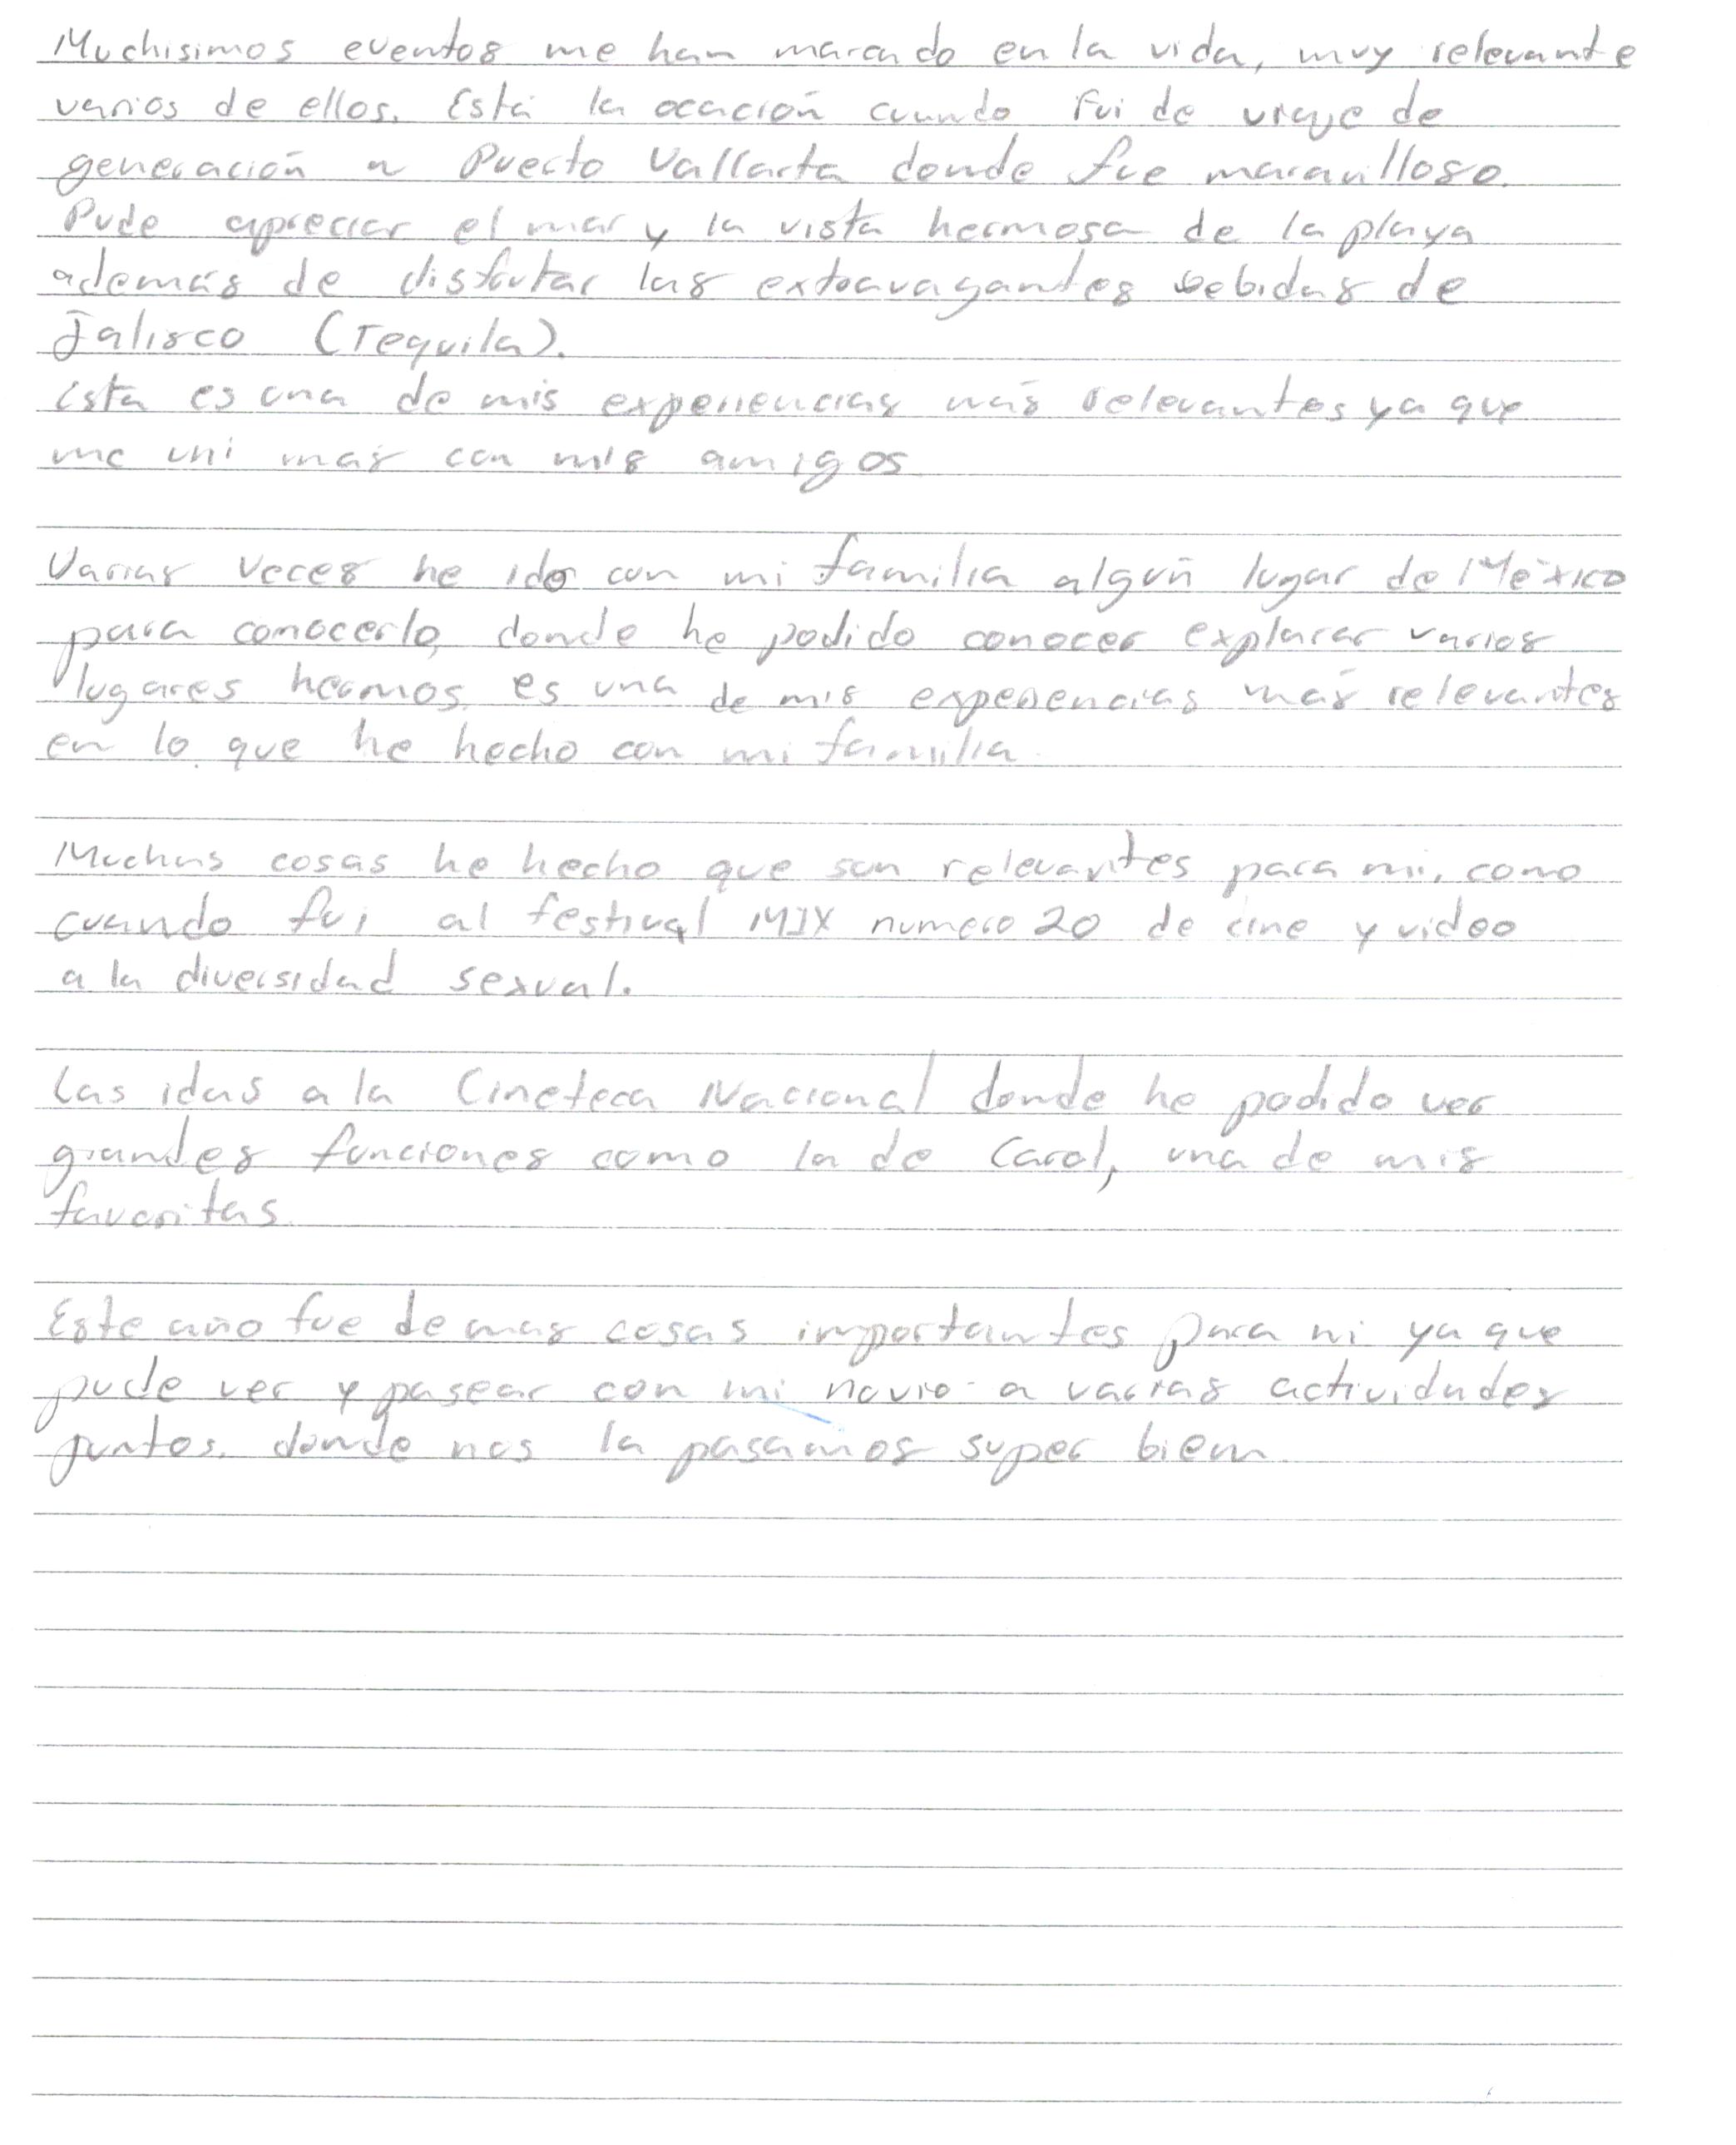 Muchisimos eventos me han marcado en la vida, muy relevante
varios de ellos. Está la ocación cuando fui de viaje de
generación a Puerto Vallarta donde fue maravilloso.
Pude apreciar el mar y la vista hermosa de la playa
además de disfrutar las extravagantes bebidas de
Jalisco (Tequila).
Esta es una de mis experiencias más relevantes ya que
me uni mas con mis amigos
Varias veces he ido con mi familia algún lugar de México
para conocerlo, donde he podido conocer explorar varios
lugares hermos es una de mis experiencias más relevantes
en lo que he hecho con mi familia.
Muchas cosas he hecho que son relevantes para mi, como
cuando fui al festival MIX numero 20 de cine y video
a la diversidad sexual.
Las idas a la Cineteca Nacional donde he podido ver
grandes funciones como la de Carol, una de mis
favoritas.
Este año fue de mas cosas importantes para mi ya que
pude ver y pasear con mi novio a varias actividades
juntos. donde nos la pasamos super bien